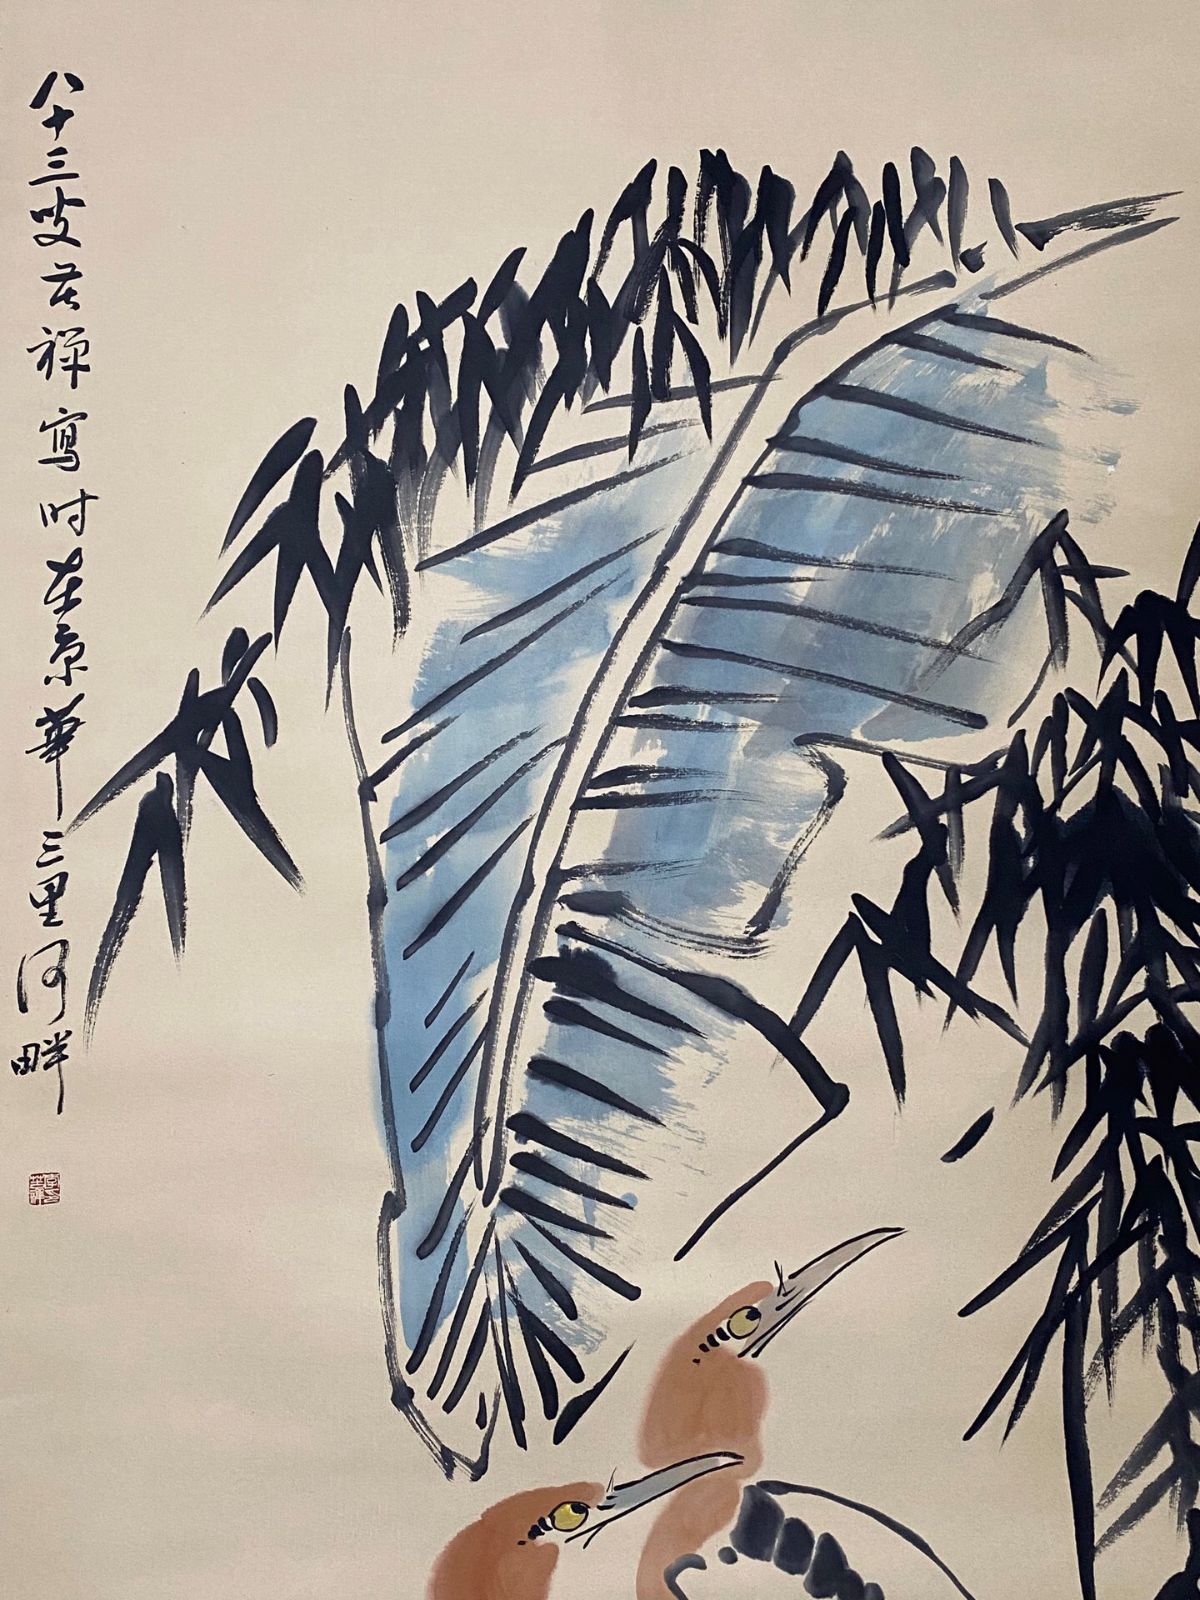 八十三叟苦禅寫时在京華三里河畔